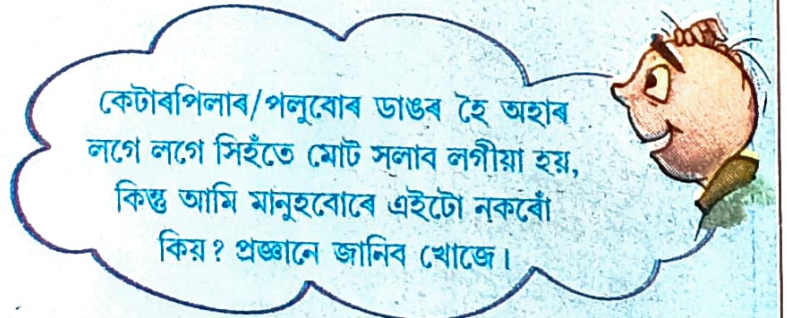 কেটাৰপিলাৰ/পলুবোৰ ডাঙৰ হৈ অহাৰ
লগে লগে সিহঁতে মোট সলাব লগীয়া হয়,
কিন্তু আমি মানুহবোৰে এইটো নকৰোঁ
কিয়? প্ৰজ্ঞানে জানিব খোজে।